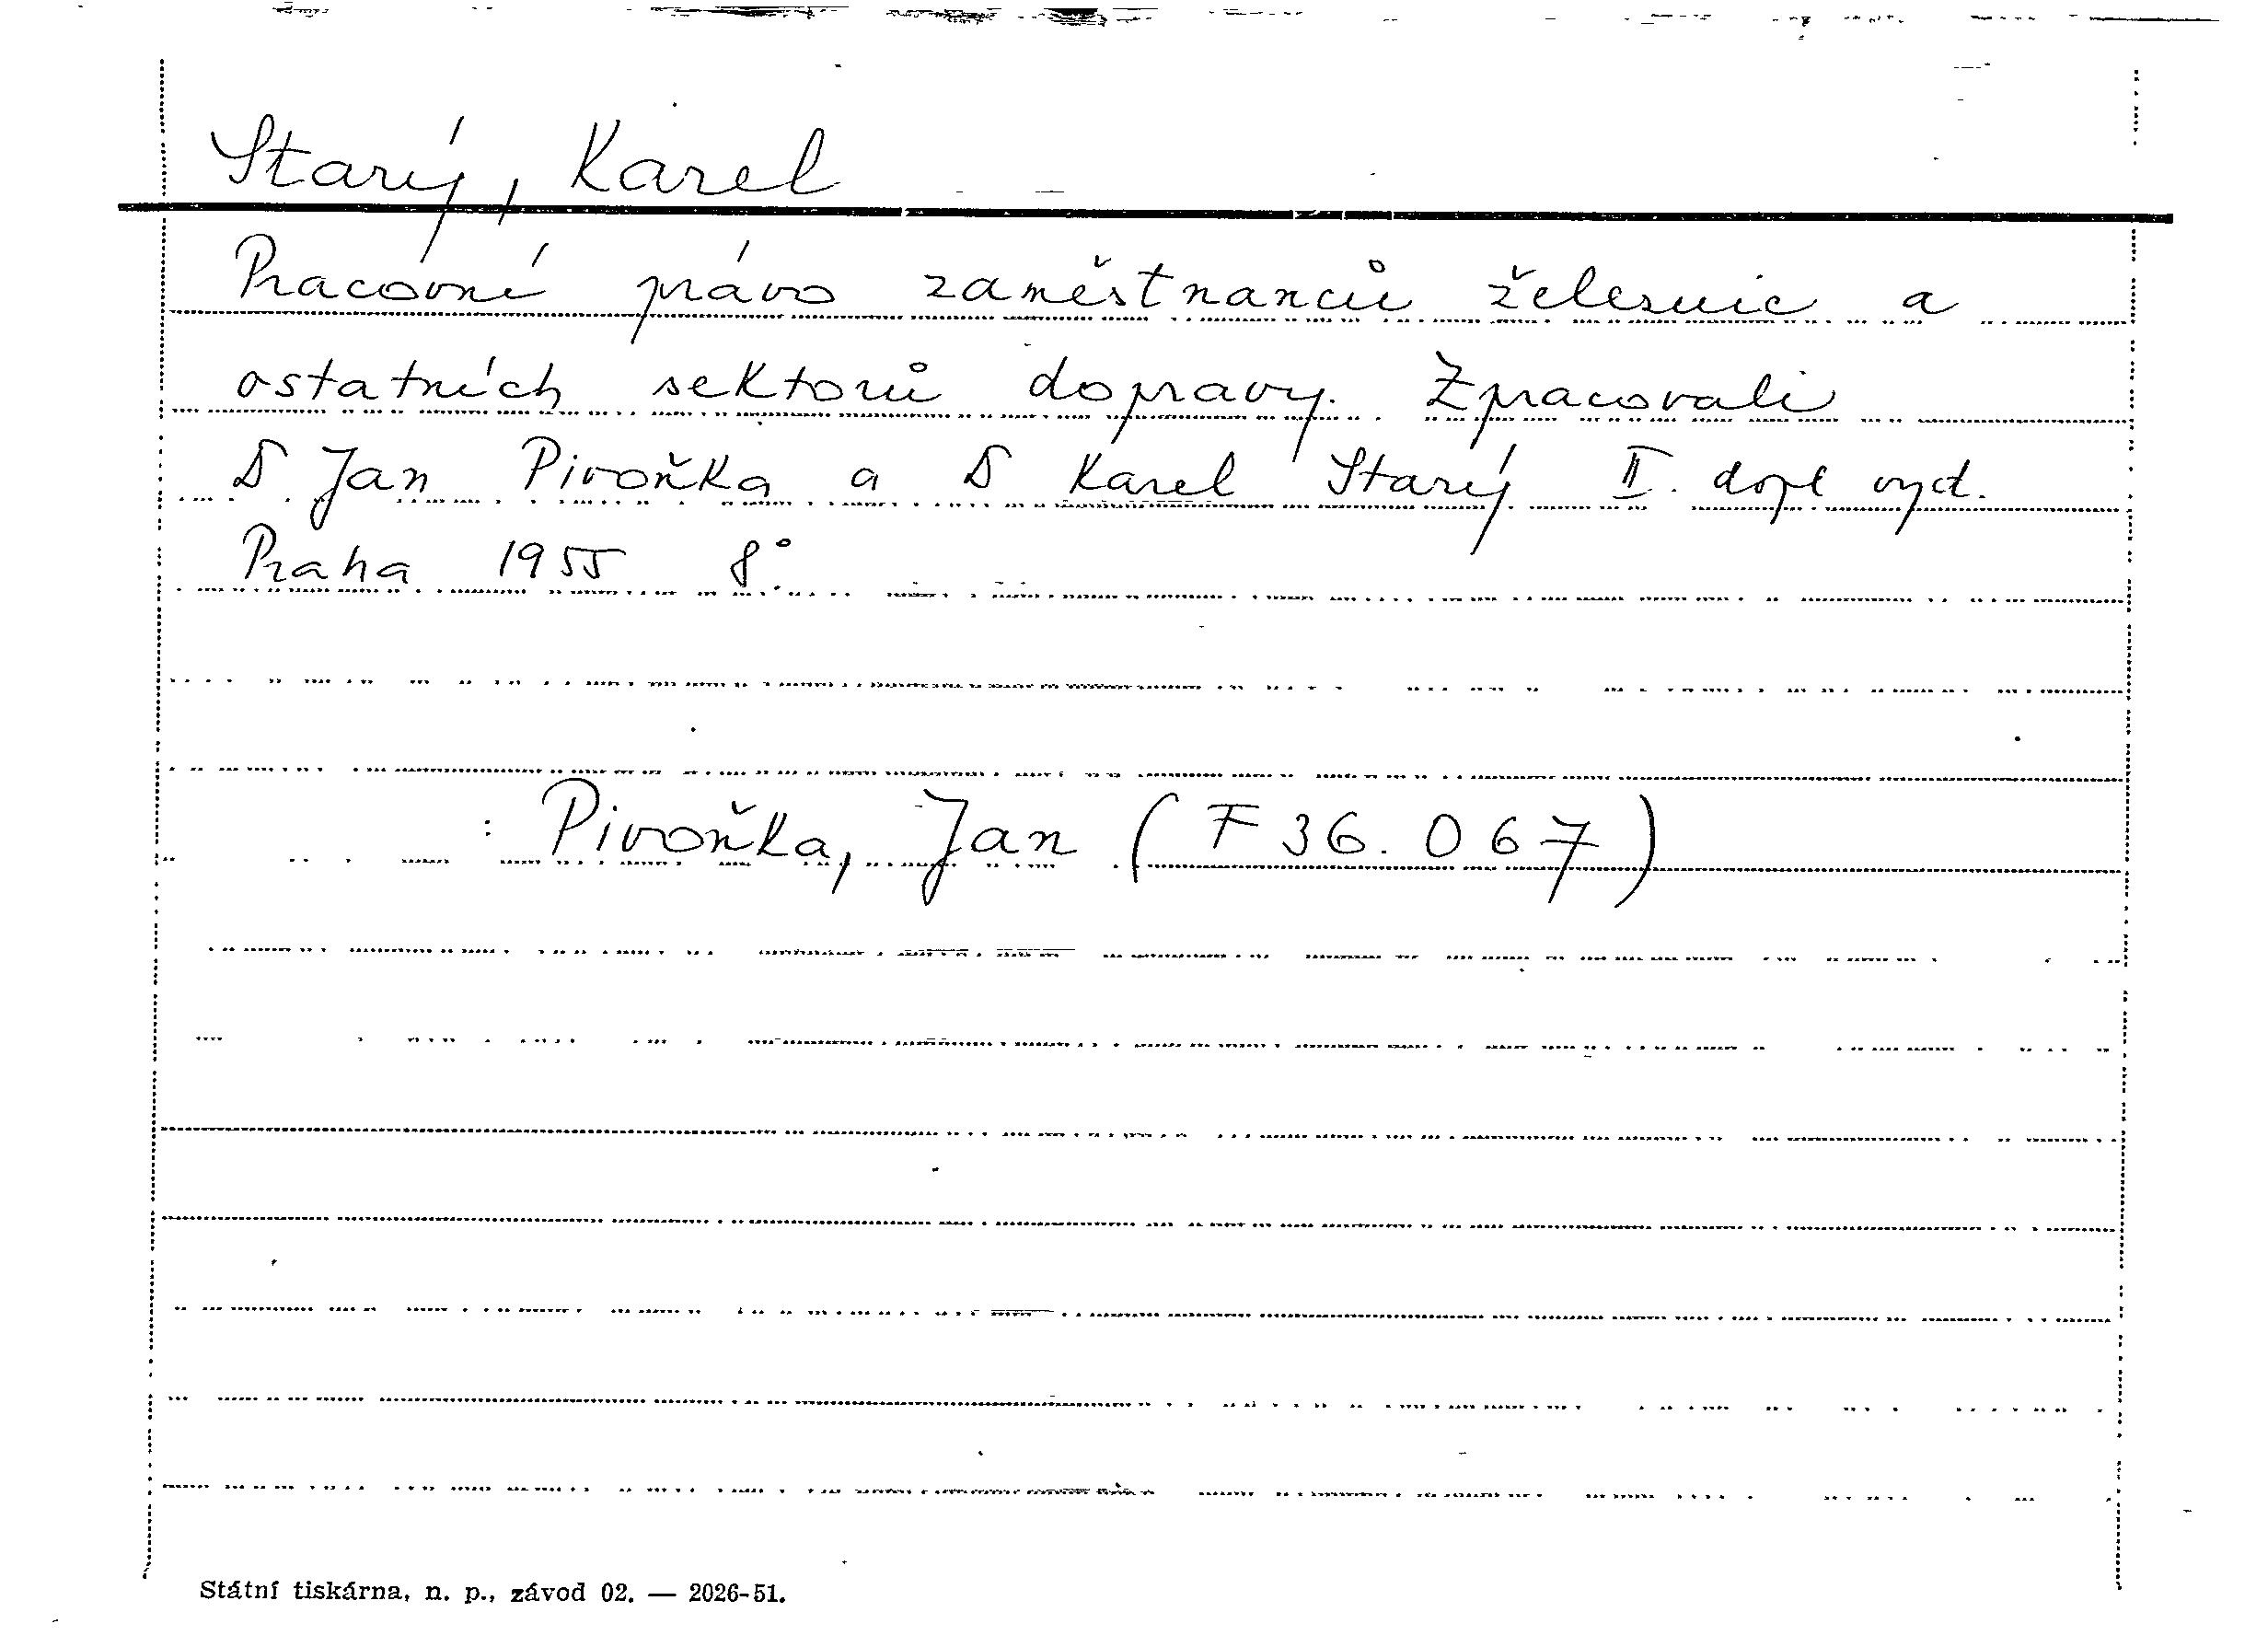 Starý, Karel
Pracovní právo zaměstnanců železnic a
ostatních sektorů dopravy. Zpracovali
Jan Pivoňka a Karel Starý II. dopl vyd.
Praha 1955 8°.
: Pivoňka, Jan (F 36.067)
Státní tiskárna, n. p., závod 02. — 2026-51.